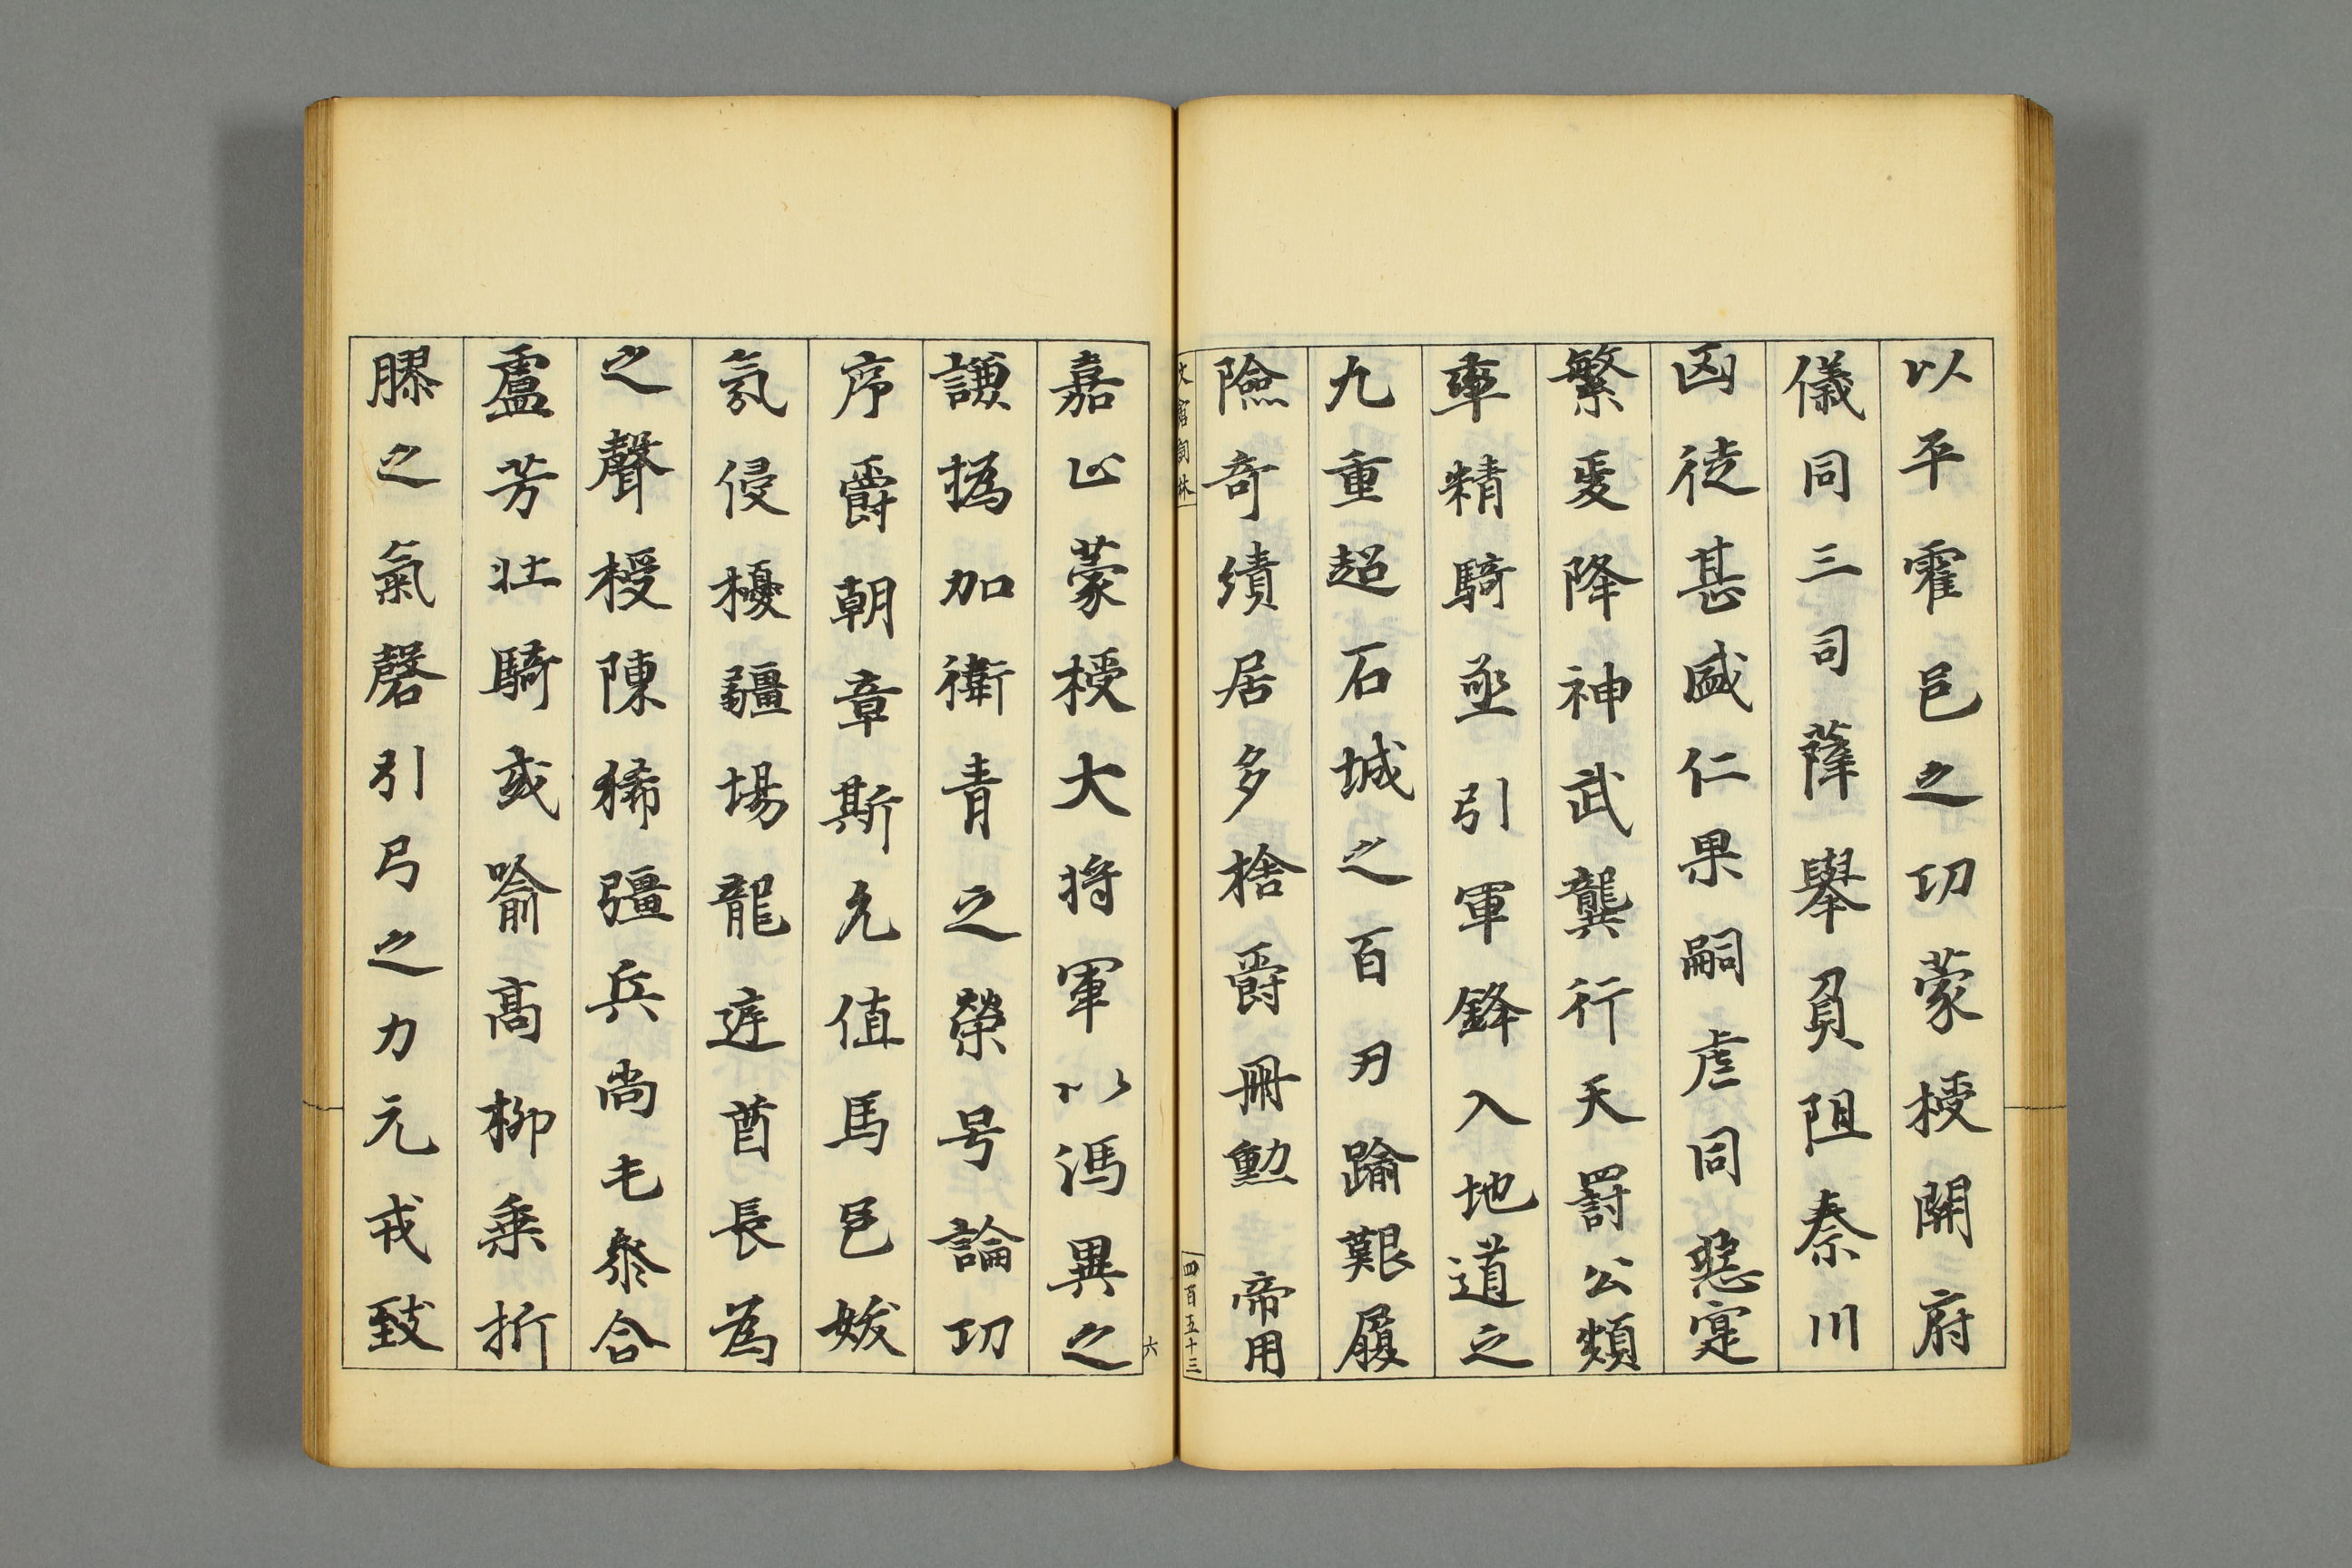 以平霍邑之功蒙授開府
儀同三司薩舉負阻秦川
凶徒甚盛仁果嗣虐同惡寔
繁爰降神武龔行天罰公頻
率精騎亟引軍鋒入地道之
九重超石城之百刃踰艱履
險奇績居多捨爵冊勲帝用
文館詞林
四百五十三
六
嘉止蒙授大将軍以馮異之
謙撝加衛青之榮号論功
序爵朝章斯允值馬邑妭
氛侵擾疆場龍逄酋長為
之聲授陳豨彊兵尚乇叅合
盧芳壮騎或喻髙柳乗折
膠之氣磬引弓之力元戎致